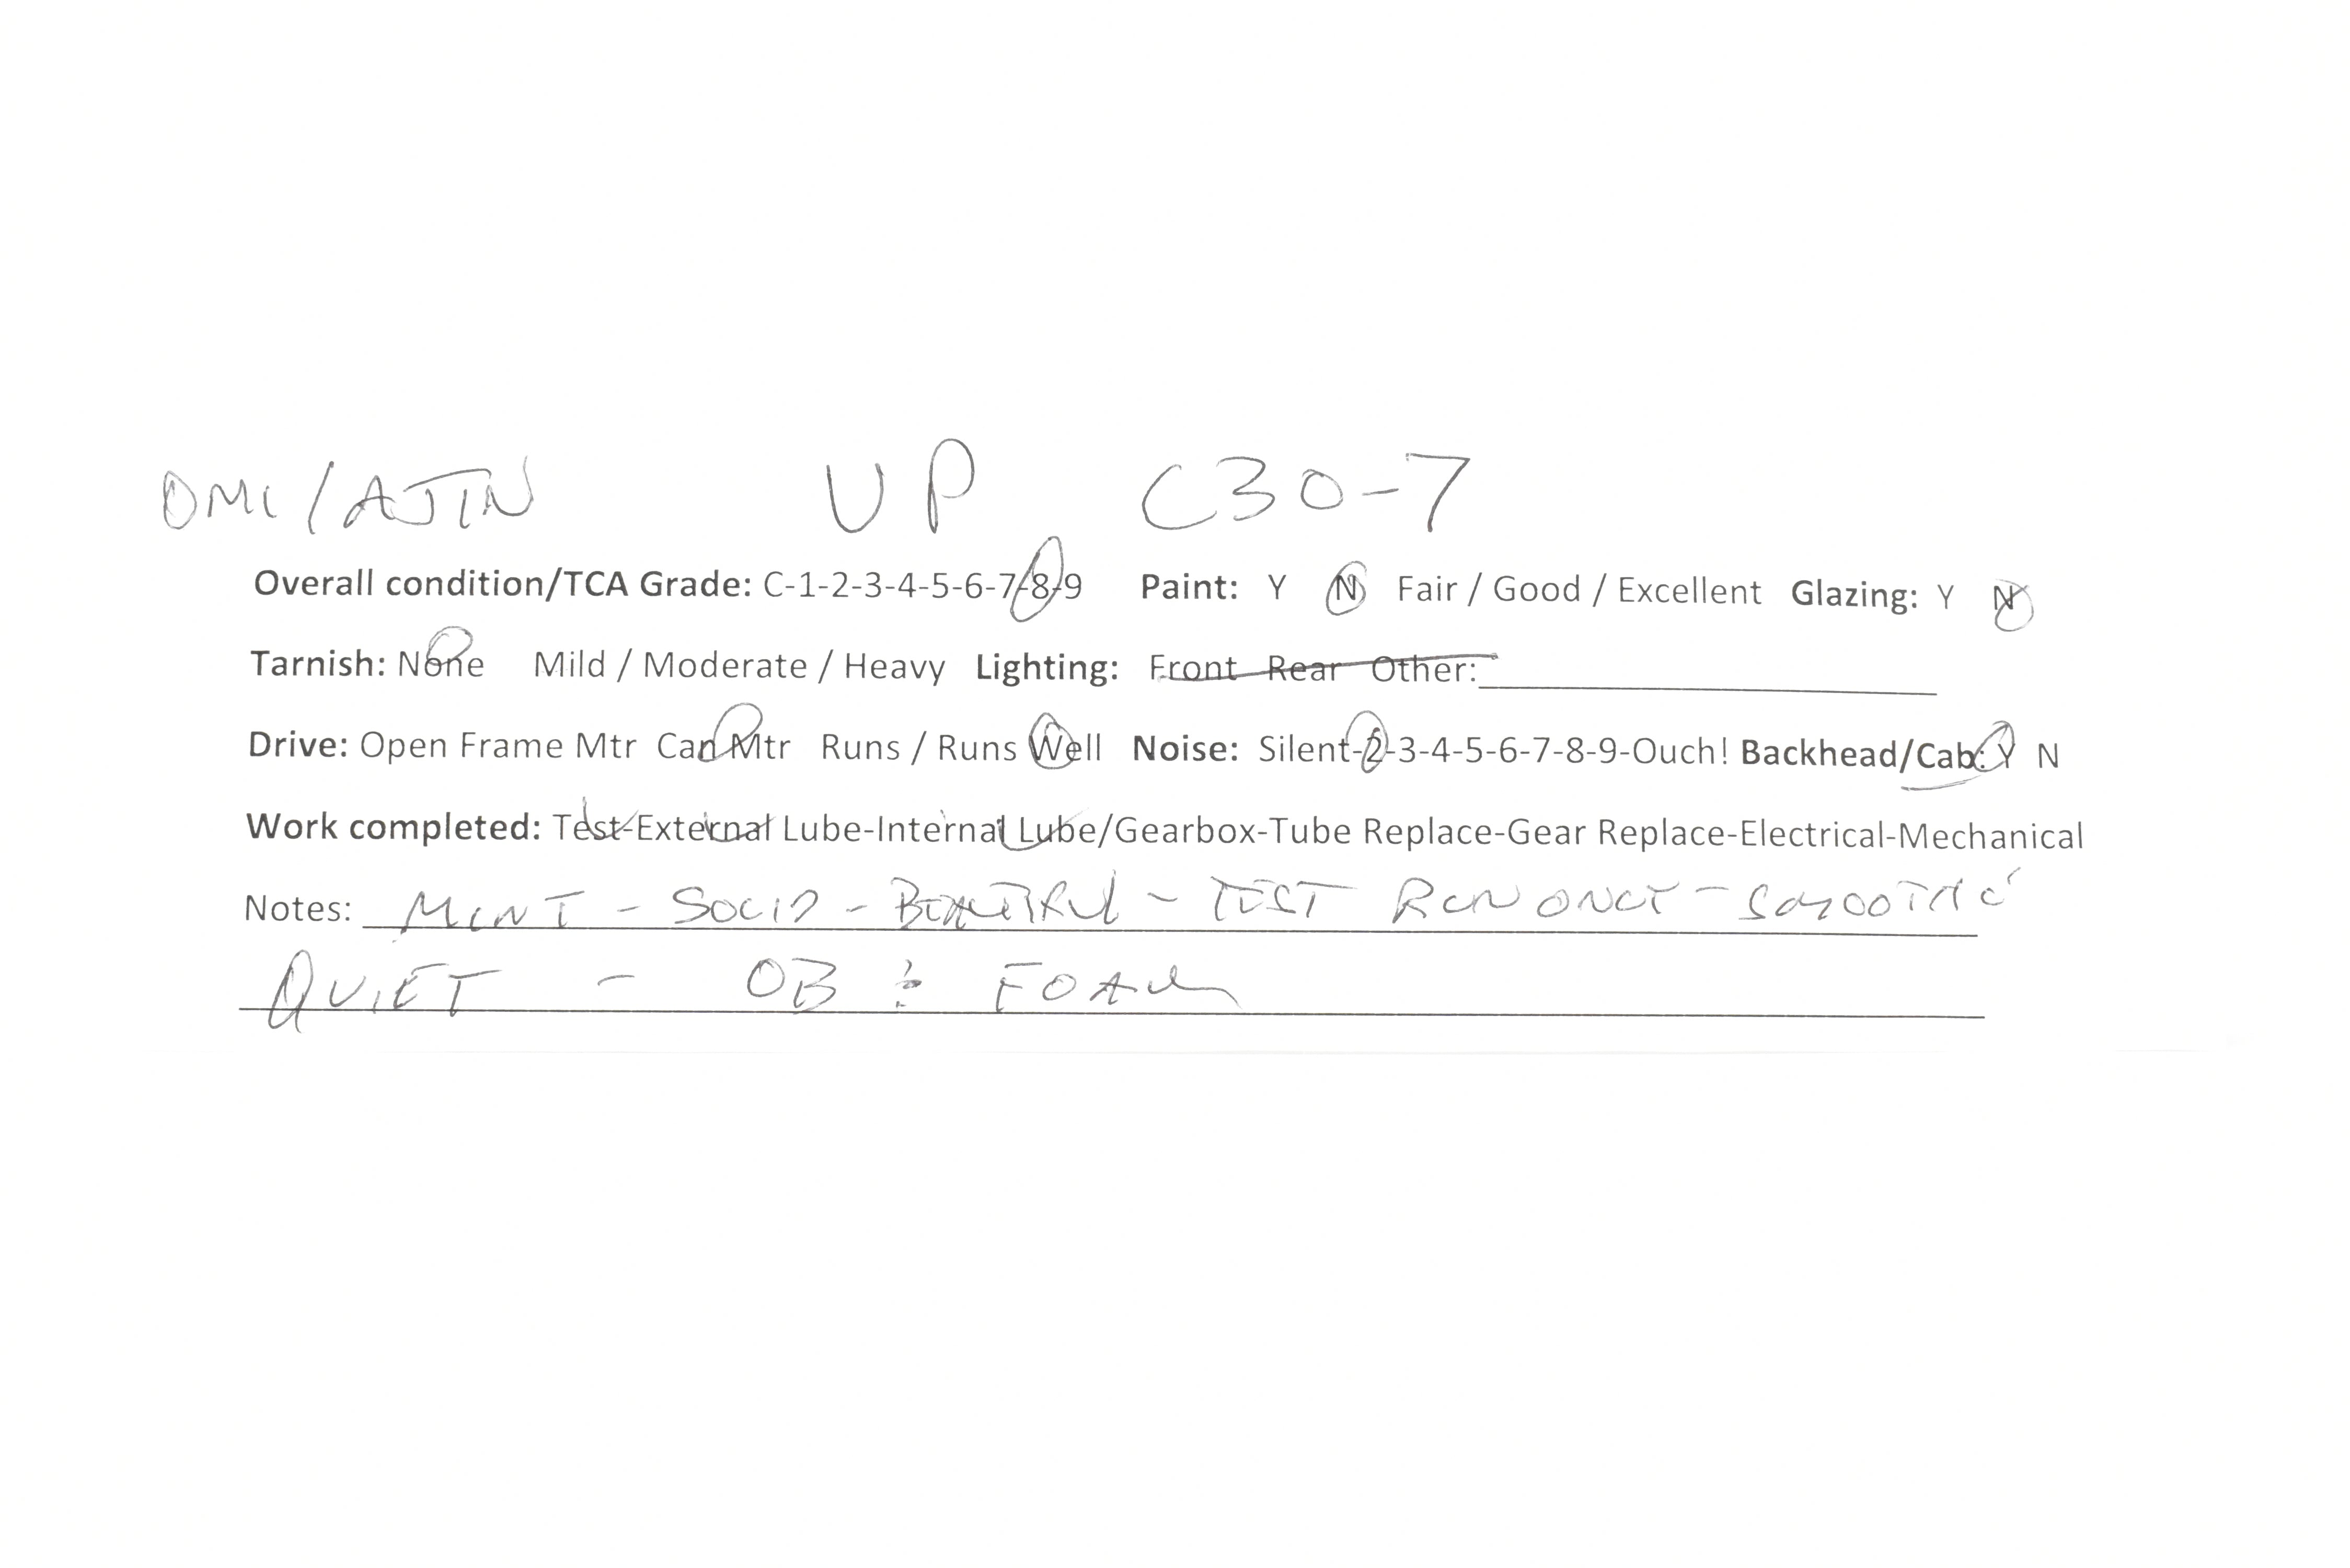 OMI/AJIN UP C30-7
Overall condition/TCA Grade: C-1-2-3-4-5-6-7-8-9 Paint: Y N Fair / Good / Excellent Glazing: Y N
Tarnish: None Mild / Moderate / Heavy Lighting: Front Rear Other:
Drive: Open Frame Mtr Can Mtr Runs / Runs Well Noise: Silent-2-3-4-5-6-7-8-9-Ouch! Backhead/Cab: Y N
Work completed: Test-External Lube-Internal Lube/Gearbox-Tube Replace-Gear Replace-Electrical-Mechanical
Notes: MINT - SOLID - BEAUTIFUL - TEST RUN ONCE - SMOOTH &
QUIET - OB & FOAM